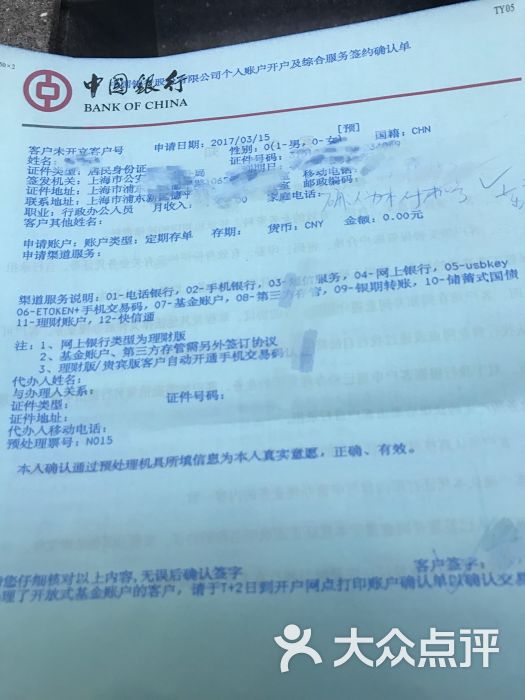 TY05
中国银行
BANK OF CHINA
股份有限公司个人账户开户及综合服务签约确认单
[预]
客户未开立客户号 申请日期：2017/03/15 性别：0(1-男，0-女) 国籍：CHN
姓名：
证件类型：居民身份证 证件号码：
签发机关：上海市公安 移动电话：
证件地址：上海市浦 室 邮政编码：
联系地址：上海市浦东新 家庭电话：
职业：行政办公人员 月收入：
客户其他姓名：
申请账户：账户类型：定期存单 存期： 货币：CNY 金额：0.00元
申请渠道服务：
渠道服务说明：01-电话银行，02-手机银行，03-短信服务，04-网上银行，05-usbkey
06-ETOKEN+手机交易码，07-基金账户，08-第三方存管，09-银期转账，10-储蓄式国债
11-理财账户，12-快信通
注：1、网上银行类型为理财版
2、基金账户、第三方存管需另外签订协议
3、理财版/贵宾版客户自动开通手机交易码
代办人姓名：
与办理人关系：
证件类型： 证件号码：
证件地址：
代办人移动电话：
预处理票号：N015
本人确认通过预处理机具所填信息为本人真实意愿，正确、有效。
您仔细核对以上内容，无误后确认签字 客户签字：
理了开放式基金账户的客户，请于T+2日到开户网点打印账户确认单以确认交易
大众点评